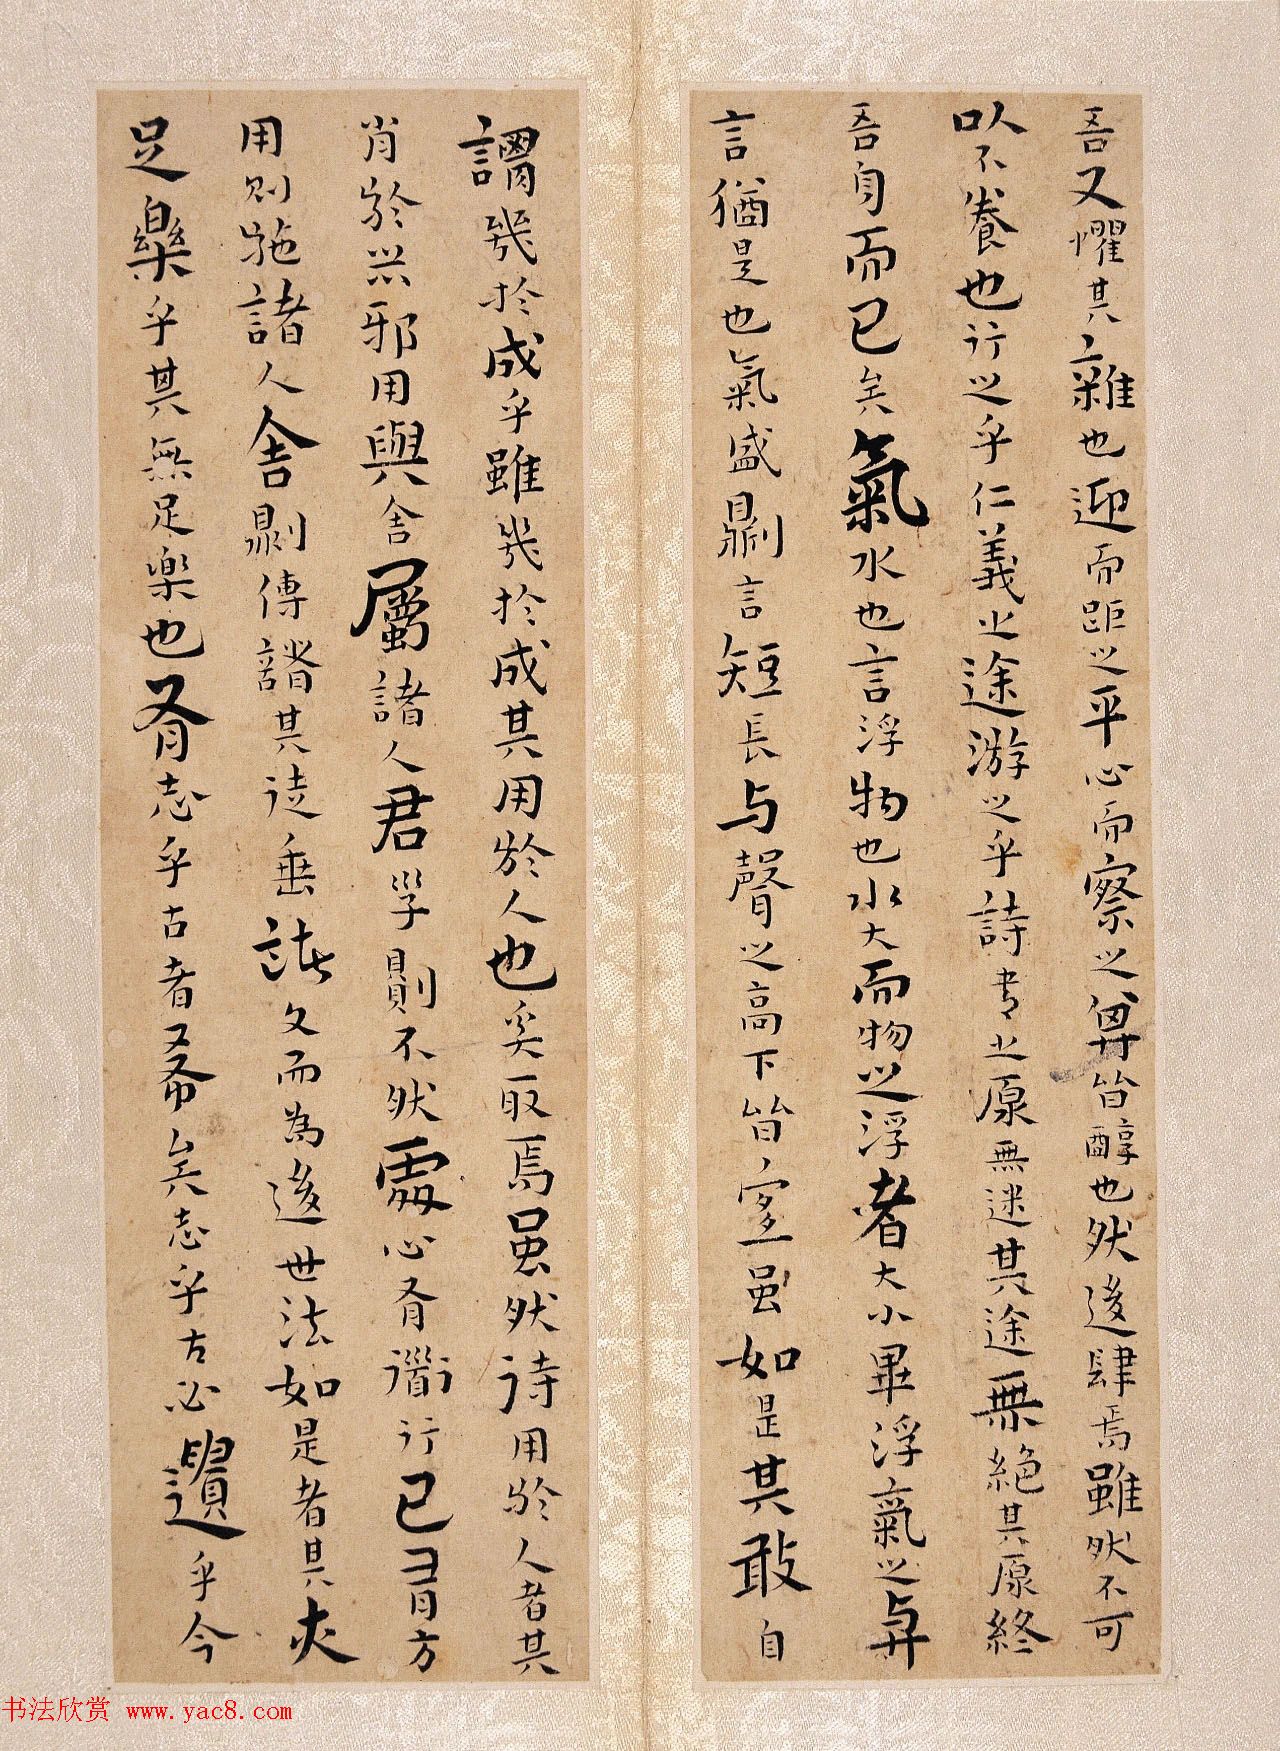 吾又懼其雜也迎而距之平心而察之其皆醇也然後肆焉雖然不可
以不養也行之乎仁義之途游之乎詩書之原無迷其途無絕其原終
吾身而已矣氣水也言浮物也水大而物之浮者大小畢浮氣之與
言猶是也氣盛則言短長与聲之高下皆宜虽如是其敢自
謂幾於成乎雖幾於成其用於人也奚取焉虽然待用於人者其
肖於器邪用與舍屬諸人君子則不然處心有道行己有方
用則施諸人舍則傳諸其徒垂諸文而為後世法如是者其亦
足樂乎其無足樂也有志乎古者希矣志乎古必遺乎今
书法欣赏 www.yac8.com